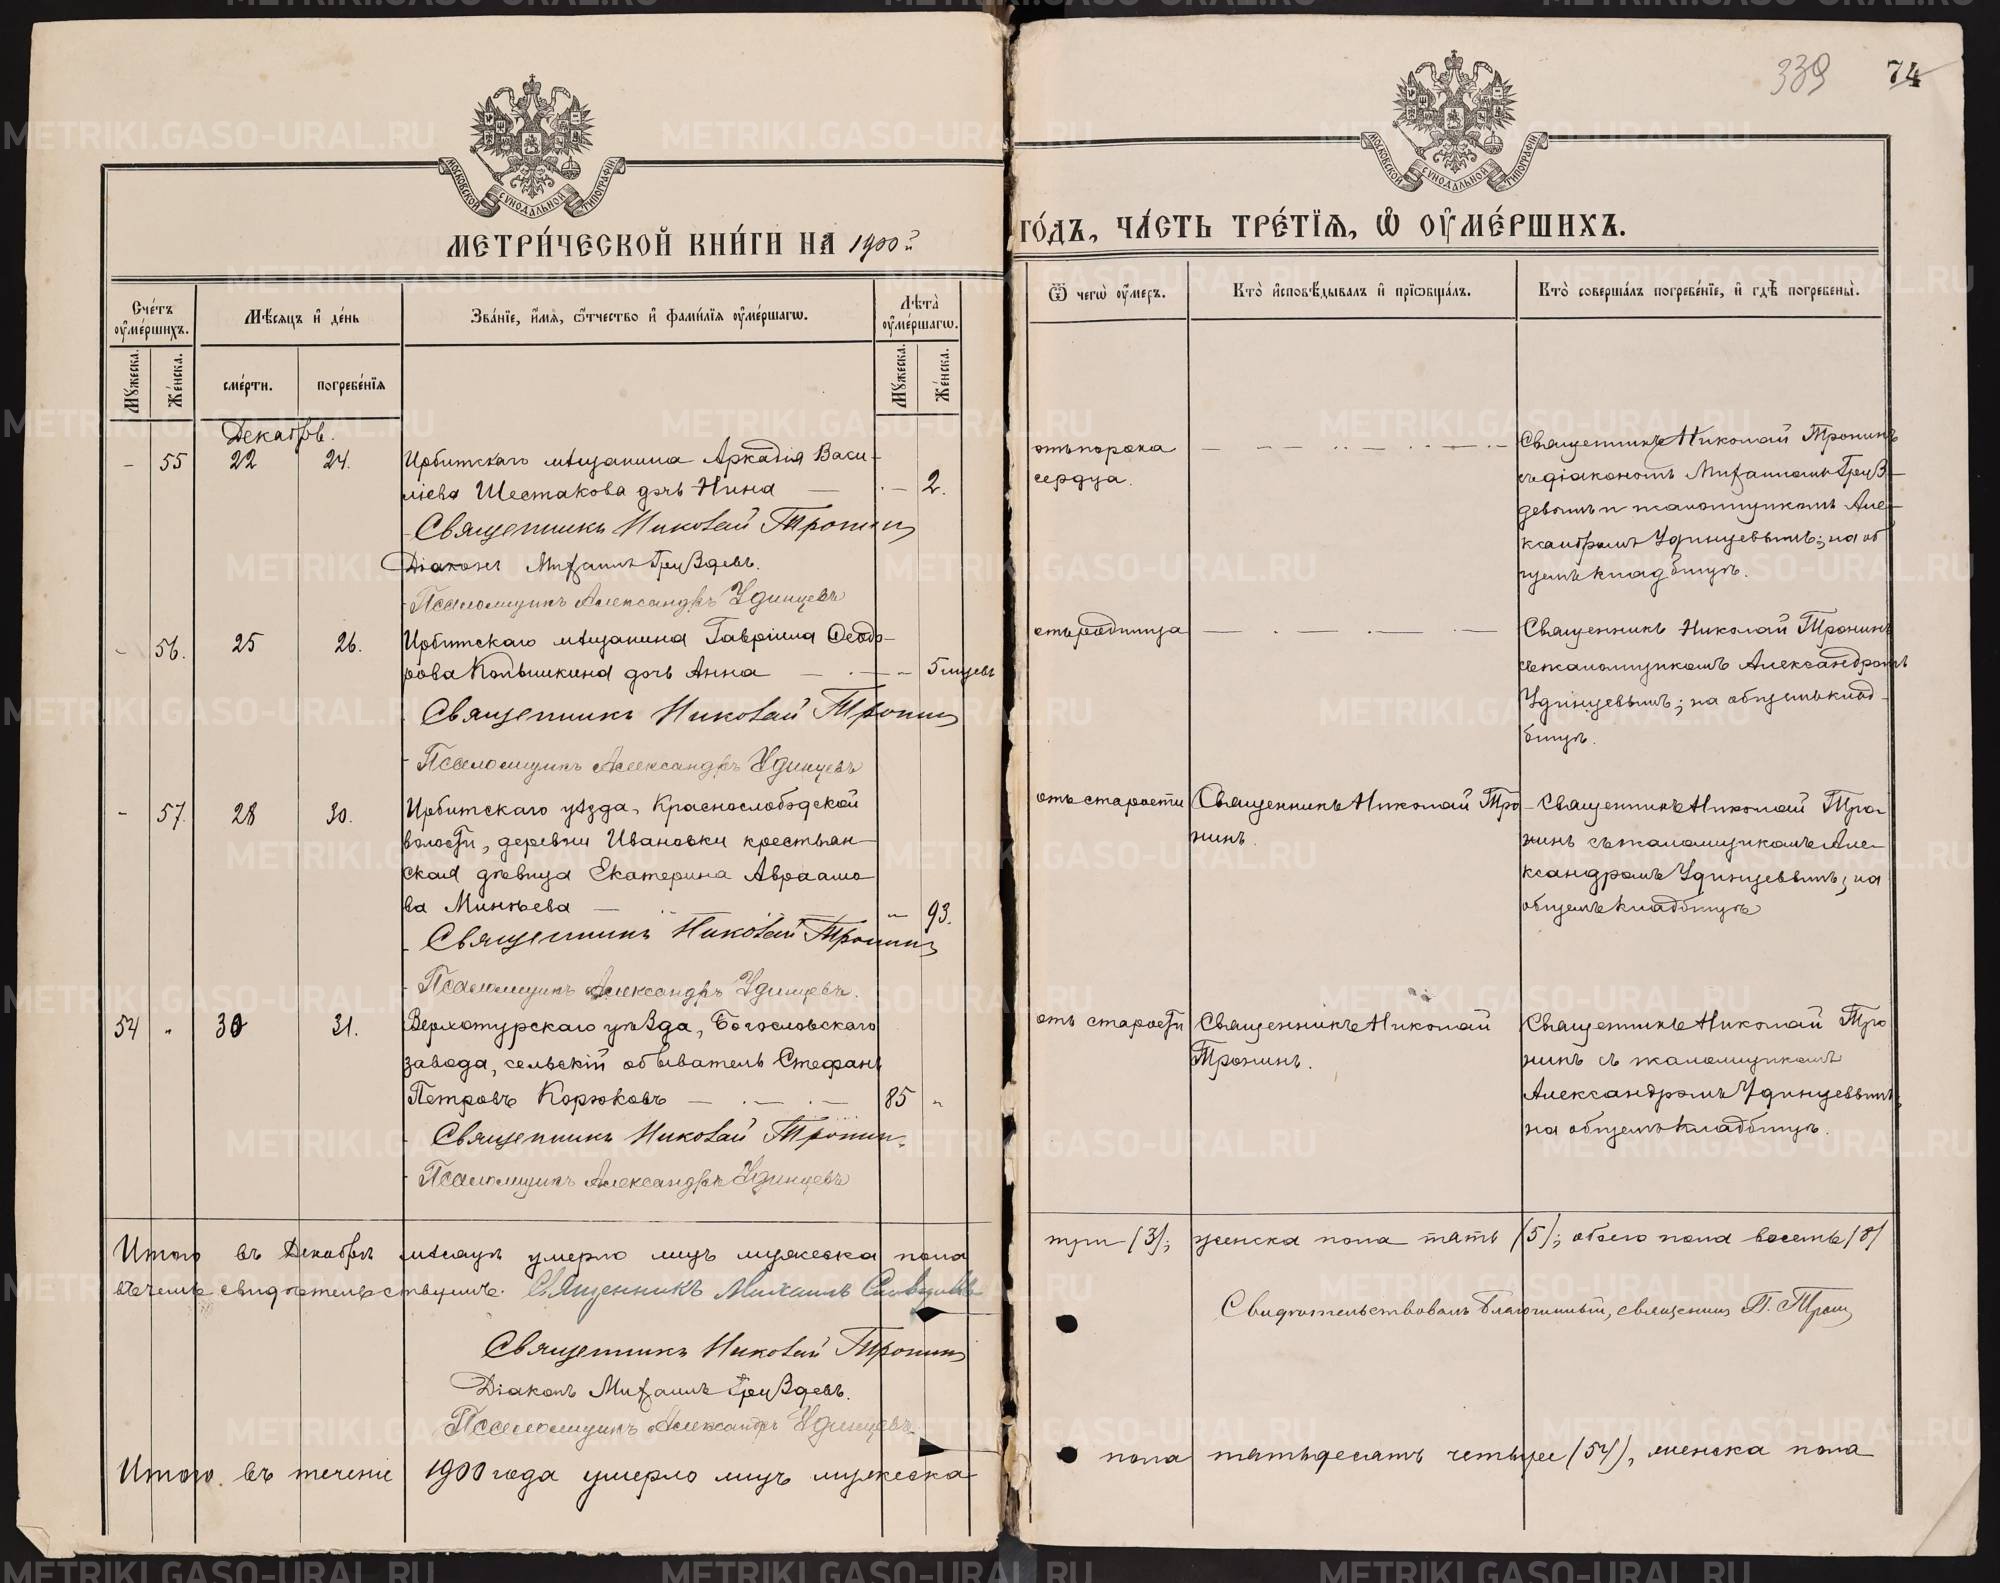 339 74
МОСКОВСКОЙ СУНОДАЛЬНОЙ ТИПОГРАФІИ
МОСКОВСКОЙ СУНОДАЛЬНОЙ ТИПОГРАФІИ
МЕТРИ́ЧЕСКОЙ КНИ́ГИ НА 1900й
ГО́ДЪ, ЧА́СТЬ ТРЕ́ТІѦ, Ѡ҆ ОУ҆МЕ́РШИХЪ.
Сче́тъ оу҆ме́ршихъ.
Мꙋ́жеска.
Же́нска.
Мѣ́сяцъ и҆ де́нь
сме́рти.
погребе́нїя
Зва́нїе, и҆́мя, ѻ҆́тчество и҆ фами́лїя оу҆ме́ршагѡ.
Лѣ́та оу҆ме́ршагѡ.
Мꙋ́жеска.
Же́нска.
Ѿ чегѡ̀ оу҆́меръ.
Кто̀ и҆сповѣ́дывалъ и҆ прїѡбща́лъ.
Кто̀ соверша́лъ погребе́нїе, и҆ гдѣ̀ погребены̀.
Декабрь.
- 55 22 24. Ирбитскаго мѣщанина Аркадія Васи-
ліева Шестакова дочь Нина — . — 2.
Священникъ Николай Тронинъ
Діаконъ Михаилъ Груздевъ.
Псаломщикъ Александръ Удинцевъ
отъ порока
сердца.
Священникъ Николай Тронинъ
съ діакономъ Михаиломъ Груз-
девымъ и псаломщикомъ Але-
ксандромъ Удинцевымъ; на об
щемъ кладбищѣ.
- 56. 25 26. Ирбитскаго мѣщанина Гавріила Ѳеодо-
рова Копышкина дочь Анна — . — 5 мцевъ
Священникъ Николай Тронинъ
Псаломщикъ Александръ Удинцевъ
отъ родимца
Священникъ Николай Тронинъ
съ псаломщикомъ Александромъ
Удинцевымъ; на общемъ клад-
бищѣ.
- 57. 28 30. Ирбитскаго уѣзда, Краснослободской
волости, деревни Ивановки крестьян-
ская дѣвица Екатерина Авраамо
ва Минѣева — „ 93.
Священникъ Николай Тронинъ
Псаломщикъ Александръ Удинцевъ.
отъ старости
Священникъ Николай Тро
нинъ.
Священникъ Николай Тро-
нинъ съ псаломщикомъ Але-
ксандромъ Удинцевымъ; на
общемъ кладбищѣ
54 „ 30 31. Верхотурскаго уѣзда, Богословскаго
завода, сельскій обыватель Стефанъ
Петровъ Корюковъ — . — . — 85 „
Священникъ Николай Тронинъ.
Псаломщикъ Александръ Удинцевъ
отъ старости
Священникъ Николай
Тронинъ.
Священникъ Николай Тро
нинъ съ псаломщикомъ
Александромъ Удинцевымъ,
на общемъ кладбищѣ.
Итого въ Декабрѣ мѣсяцѣ умерло лицъ мужеска пола
три (3); женска пола пять (5); обоего пола восемь (8)
въ чемъ свидѣтельствуемъ. Священникъ Михаилъ
Свидѣтельствовалъ Благочинный, священникъ П. Тронинъ
Священникъ Николай Тронинъ
Діаконъ Михаилъ Груздевъ.
Псаломщикъ Александръ Удинцевъ.
Итого въ теченіе 1900 года умерло лицъ мужеска
пола пятьдесятъ четыре (54), женска пола
METRIKI.GASO-URAL.RU